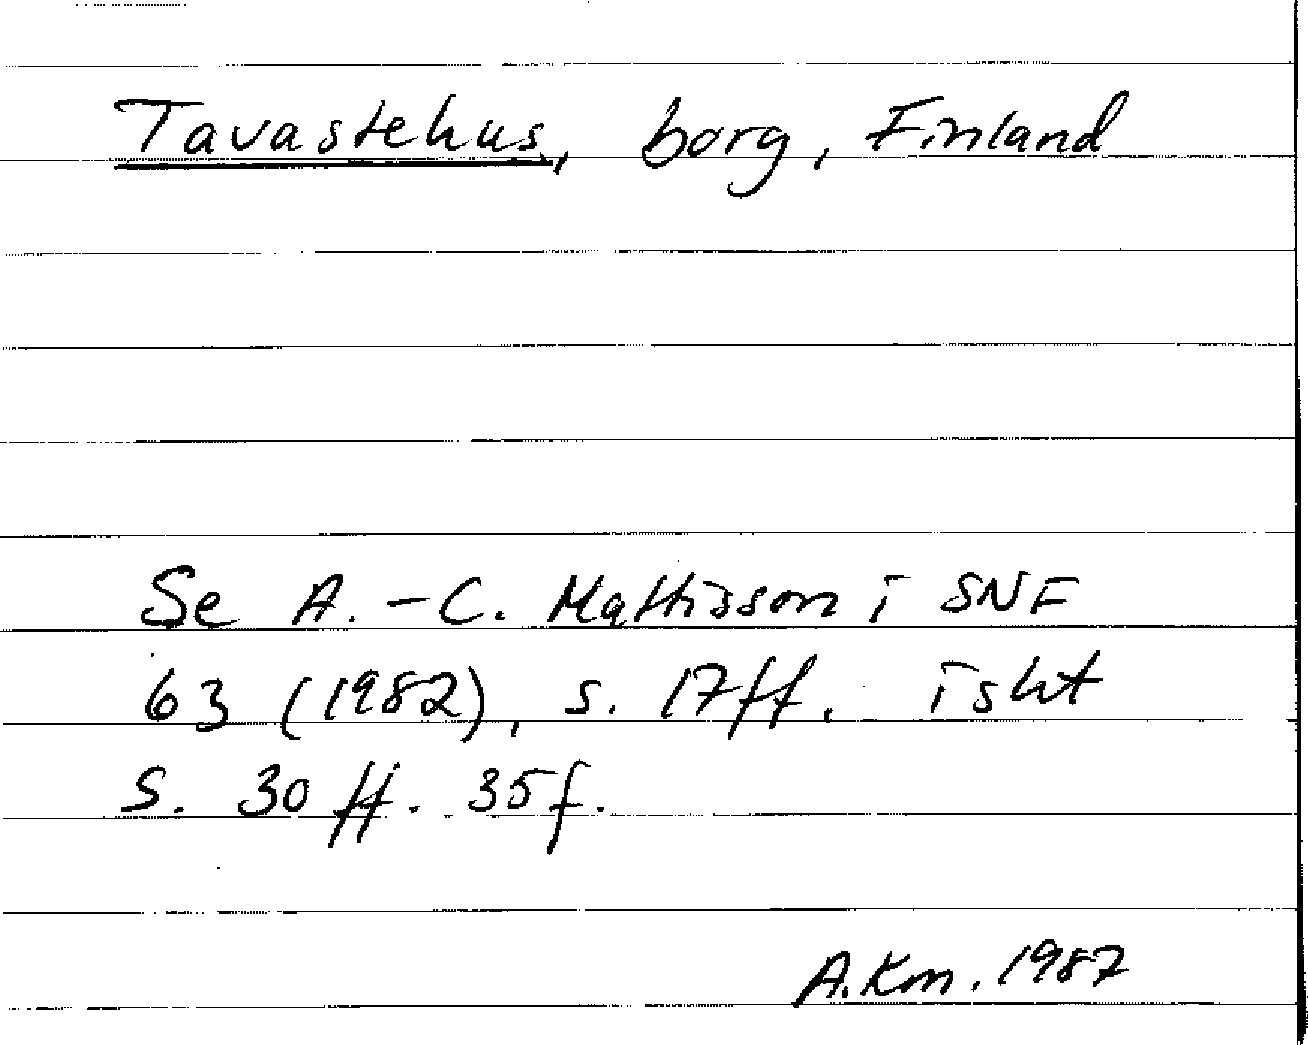 Tavastehus, borg, Finland
Se A.-C. Mattisson i SNF
63 (1982), s. 17 ff. isht
s. 30 ff. 35 f.
A.Km. 1987